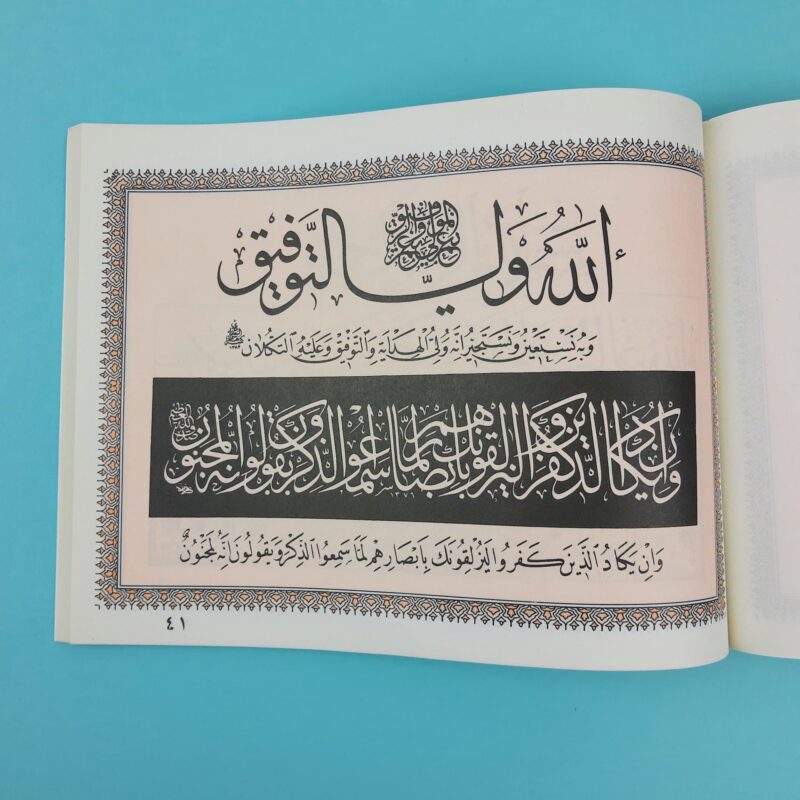 الله ولي التوفيق
وَبِهِ نَسْتَعِيْنُ وَنَسْتَجِيْرُ اِنَّهُ وَلِيُّ الْهِدَايَةِ وَالتَّوْفِيْقِ وَعَلَيْهِ التُّكْلَانُ
وَاِنْ يَكَادُ الَّذِيْنَ كَفَرُوا لَيُزْلِقُوْنَكَ بِاَبْصَارِهِمْ لَمَّا سَمِعُوا الذِّكْرَ وَيَقُوْلُوْنَ اِنَّهُ لَمَجْنُوْنٌ ١٣٧٦
وَاِنْ يَكَادُ الَّذِيْنَ كَفَرُوا لَيُزْلِقُوْنَكَ بِاَبْصَارِهِمْ لَمَّا سَمِعُوا الذِّكْرَ وَيَقُوْلُوْنَ اِنَّهُ لَمَجْنُوْنٌ
٤١